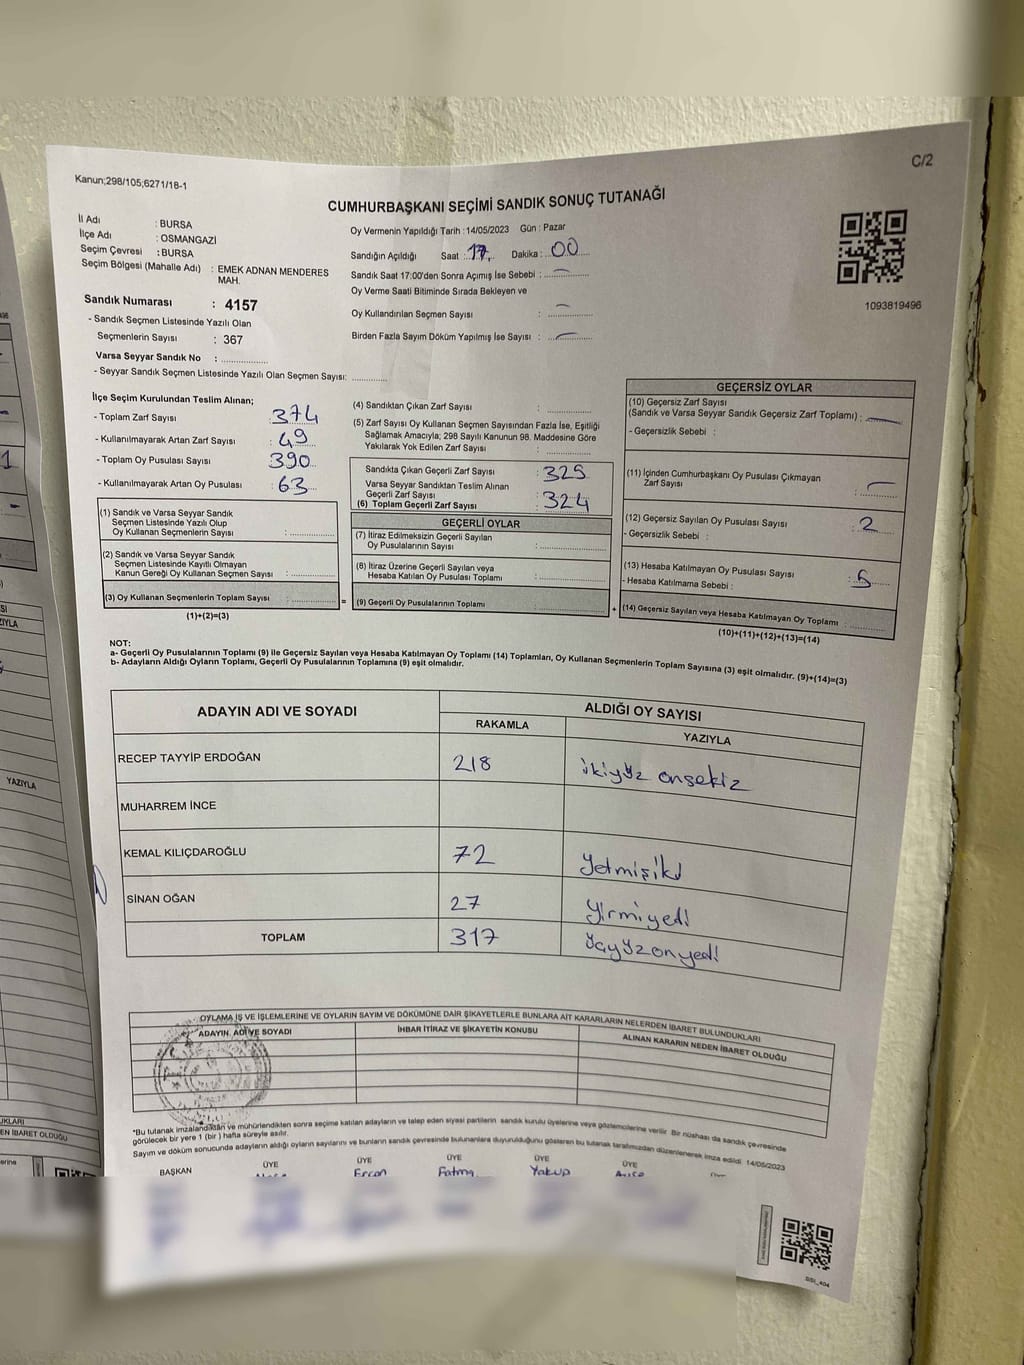 C/2
Kanun;298/105;6271/18-1
CUMHURBAŞKANI SEÇİMİ SANDIK SONUÇ TUTANAĞI
İl Adı : BURSA
İlçe Adı : OSMANGAZİ
Seçim Çevresi : BURSA
Seçim Bölgesi (Mahalle Adı) : EMEK ADNAN MENDERES
MAH.
Sandık Numarası : 4157
- Sandık Seçmen Listesinde Yazılı Olan
Seçmenlerin Sayısı : 367
Varsa Seyyar Sandık No : ....................
- Seyyar Sandık Seçmen Listesinde Yazılı Olan Seçmen Sayısı: ............
Oy Vermenin Yapıldığı Tarih : 14/05/2023 Gün : Pazar
Sandığın Açıldığı Saat : 17 Dakika : 00
Sandık Saat 17:00'den Sonra Açımış İse Sebebi : —
Oy Verme Saati Bitiminde Sırada Bekleyen ve
Oy Kullandırılan Seçmen Sayısı : —
Birden Fazla Sayım Döküm Yapılmış İse Sayısı : —
1093819496
İlçe Seçim Kurulundan Teslim Alınan;
- Toplam Zarf Sayısı : 374
- Kullanılmayarak Artan Zarf Sayısı : 49
- Toplam Oy Pusulası Sayısı : 390
- Kullanılmayarak Artan Oy Pusulası : 63
(1) Sandık ve Varsa Seyyar Sandık
Seçmen Listesinde Yazılı Olup
Oy Kullanan Seçmenlerin Sayısı :
(2) Sandık ve Varsa Seyyar Sandık
Seçmen Listesinde Kayıtlı Olmayan
Kanun Gereği Oy Kullanan Seçmen Sayısı :
(3) Oy Kullanan Seçmenlerin Toplam Sayısı :
(1)+(2)=(3)
=
(4) Sandıktan Çıkan Zarf Sayısı :
(5) Zarf Sayısı Oy Kullanan Seçmen Sayısından Fazla İse, Eşitliği
Sağlamak Amacıyla; 298 Sayılı Kanunun 98. Maddesine Göre
Yakılarak Yok Edilen Zarf Sayısı :
Sandıkta Çıkan Geçerli Zarf Sayısı : 325
Varsa Seyyar Sandıktan Teslim Alınan
Geçerli Zarf Sayısı
(6) Toplam Geçerli Zarf Sayısı : 324
GEÇERLİ OYLAR
(7) İtiraz Edilmeksizin Geçerli Sayılan
Oy Pusulalarının Sayısı :
(8) İtiraz Üzerine Geçerli Sayılan veya
Hesaba Katılan Oy Pusulası Toplamı :
(9) Geçerli Oy Pusulalarının Toplamı :
+
GEÇERSİZ OYLAR
(10) Geçersiz Zarf Sayısı
(Sandık ve Varsa Seyyar Sandık Geçersiz Zarf Toplamı) : —
- Geçersizlik Sebebi :
(11) İçinden Cumhurbaşkanı Oy Pusulası Çıkmayan
Zarf Sayısı : —
(12) Geçersiz Sayılan Oy Pusulası Sayısı : 2
- Geçersizlik Sebebi :
(13) Hesaba Katılmayan Oy Pusulası Sayısı : 5
- Hesaba Katılmama Sebebi :
(14) Geçersiz Sayılan veya Hesaba Katılmayan Oy Toplamı :
(10)+(11)+(12)+(13)=(14)
NOT:
a- Geçerli Oy Pusulalarının Toplamı (9) ile Geçersiz Sayılan veya Hesaba Katılmayan Oy Toplamı (14) Toplamları, Oy Kullanan Seçmenlerin Toplam Sayısına (3) eşit olmalıdır. (9)+(14)=(3)
b- Adayların Aldığı Oyların Toplamı, Geçerli Oy Pusulalarının Toplamına (9) eşit olmalıdır.
ADAYIN ADI VE SOYADI ALDIĞI OY SAYISI
RAKAMLA YAZIYLA
RECEP TAYYİP ERDOĞAN 218 ikiyüz onsekiz
MUHARREM İNCE
KEMAL KILIÇDAROĞLU 72 Yetmişiki
SİNAN OĞAN 27 Yirmiyedi
TOPLAM 317 Üçyüzonyedi
OYLAMA İŞ VE İŞLEMLERİNE VE OYLARIN SAYIM VE DÖKÜMÜNE DAİR ŞİKAYETLERLE BUNLARA AİT KARARLARIN NELERDEN İBARET BULUNDUKLARI
ADAYIN ADI VE SOYADI İHBAR İTİRAZ VE ŞİKAYETİN KONUSU ALINAN KARARIN NEDEN İBARET OLDUĞU
*Bu tutanak imzalandıktan ve mühürlendikten sonra seçime katılan adayların ve talep eden siyasi partilerin sandık kurulu üyelerine veya gözlemcilerine verilir. Bir nüshası da sandık çevresinde
görülecek bir yere 1 (bir) hafta süreyle asılır.
Sayım ve döküm sonucunda adayların aldığı oyların sayılarını ve bunların sandık çevresinde bulunanlara duyurulduğunu gösteren bu tutanak tarafımızdan düzenlenerek imza edildi. 14/05/2023
BAŞKAN ÜYE ÜYE ÜYE ÜYE ÜYE
Ercan Fatma Yakup
YAZIYLA